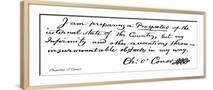 I am preparing a Prospectus of the
internal state of the Country, but my
Infirmity and other avocations throw in
insurmountable objects in my way.
Ch: O'Conor
Charles O'Conor